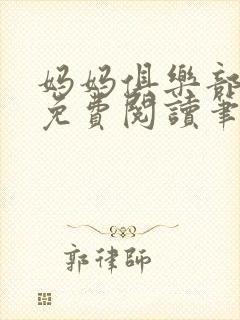 妈妈俱樂部
免費閱讀筆
郭律師